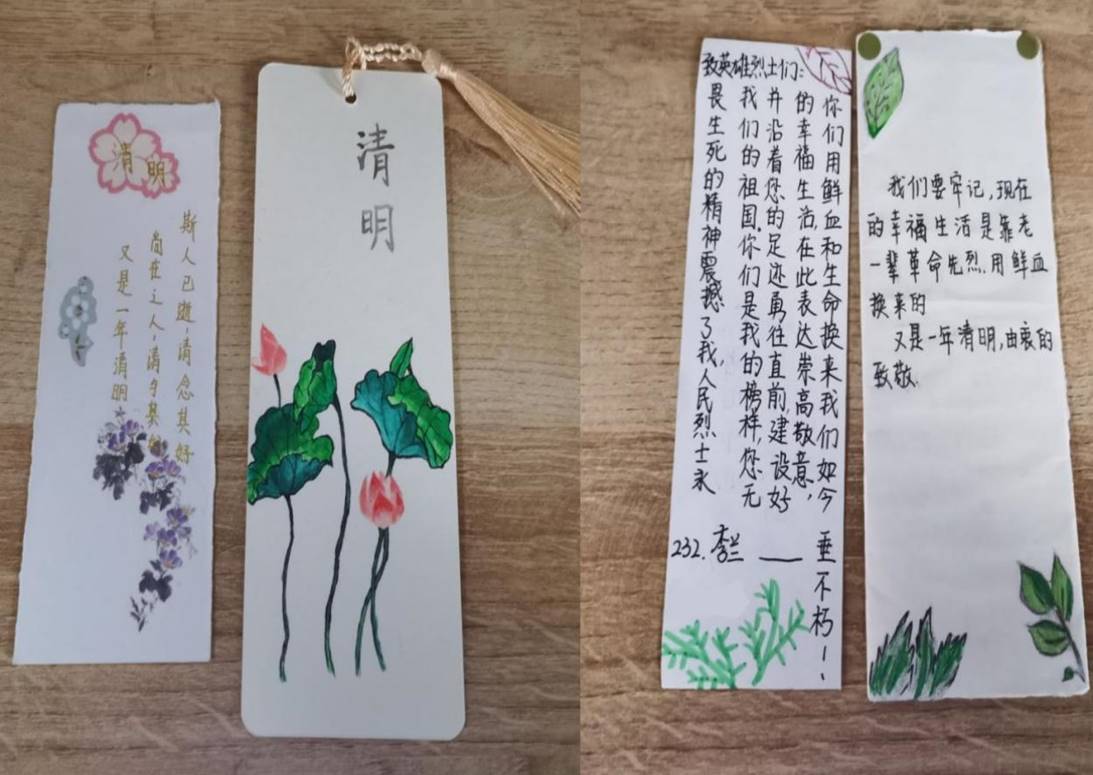 清明
斯人已逝,请念其好
尚在之人,其好
又是一年清明
清明
致英雄烈士们:
你们用鲜血和生命换来我们如今
的幸福生活,在此表达崇高敬意,
并沿着您的足迹勇往直前,建设好
我们的祖国,你们是我的榜样,您无
畏生死的精神震撼了我,人民烈士永
垂不朽!
232.李兰
我们要牢记,现在
的幸福生活是靠老
一辈革命先烈,用鲜血
换来的
又是一年清明,由衷的
致敬.